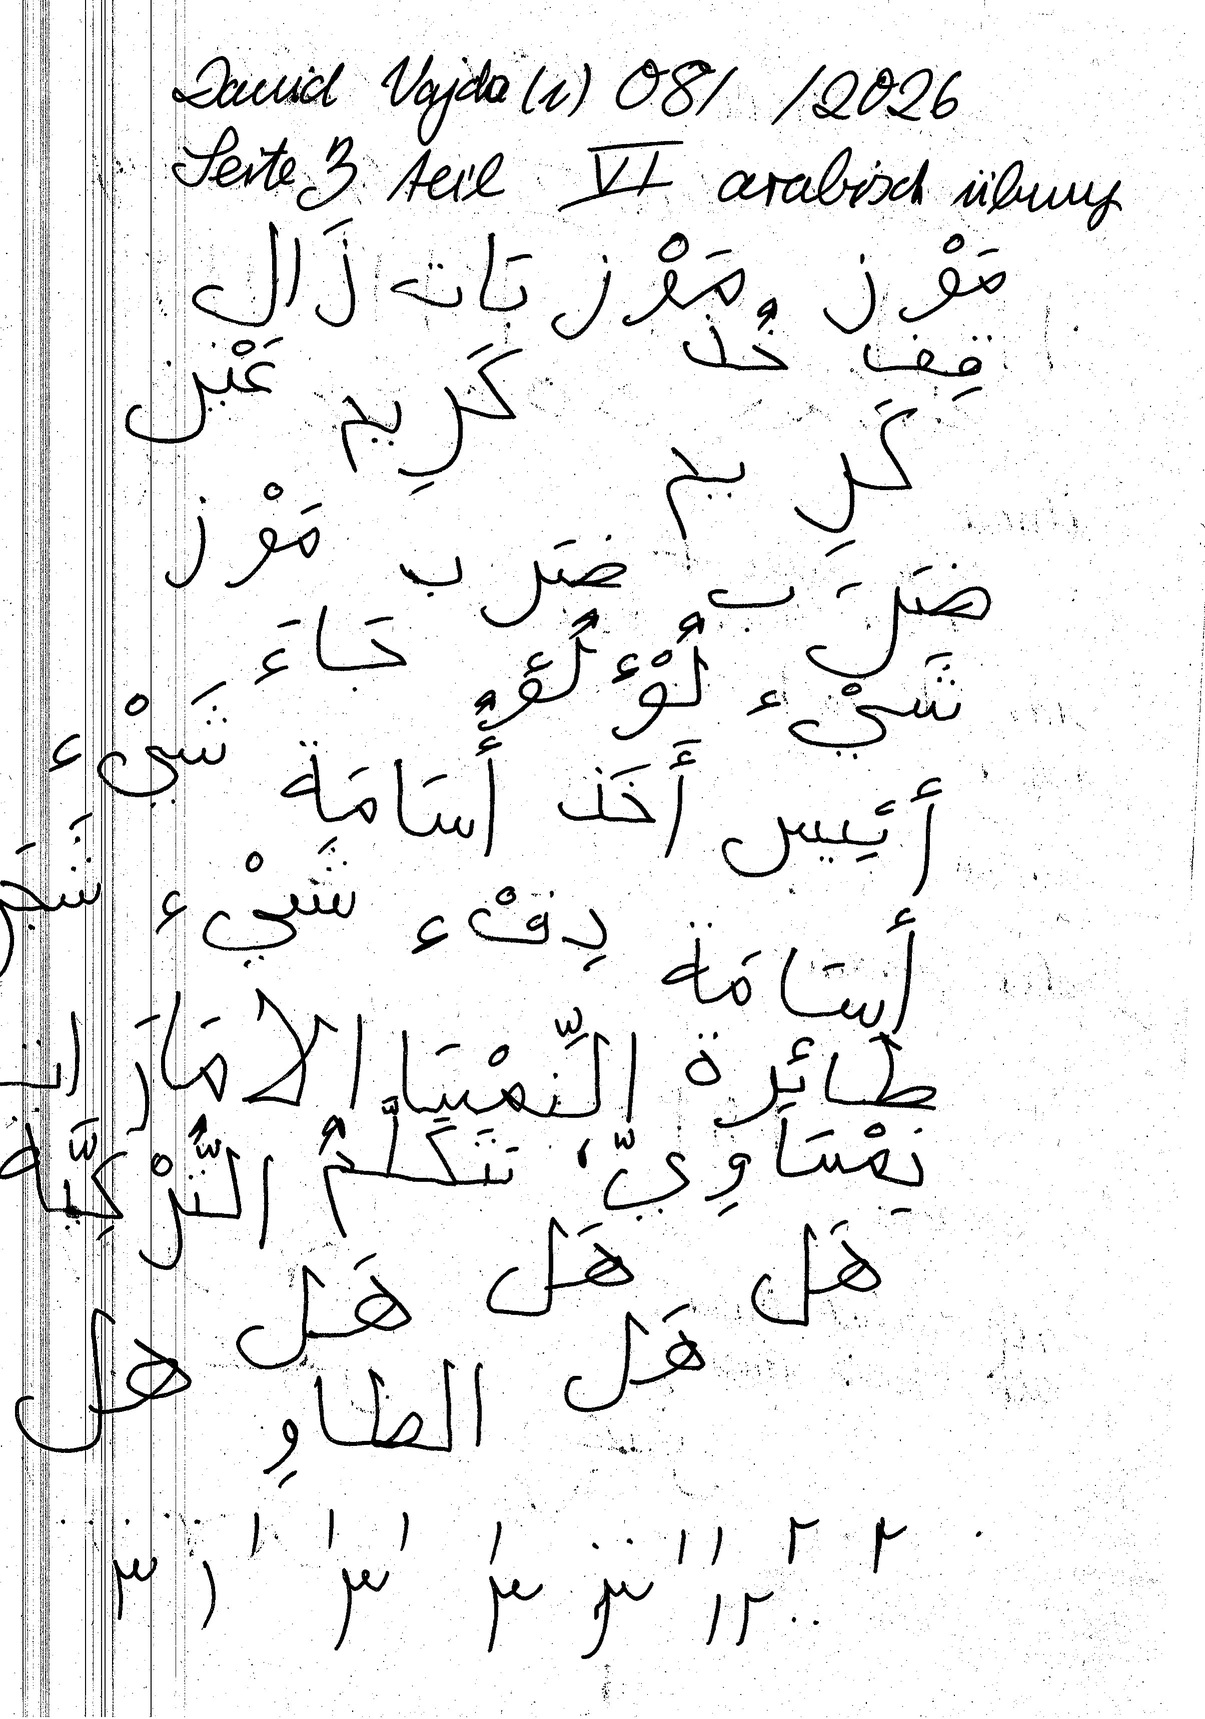 David Vajda (1) 08/ /2026
Seite 3 Teil VI arabisch übung
مَوْز مَوْز تَات زَال
قِف خُذ كَرِيم عَيْن
كَرِيم
ضَرَب ضَرَب مَوْز
شَيْء لُؤْلُؤٌ جَاءَ
أَئِيس أَخَذ أُسَامَة شَيْء
أُسَامَة دِفْء شَيْء شَجَر
طَائِرة النِّمْسَا الامَارَات
نِمْسَاوِيّ، تَتَكَلَّمُ التُّرْكِيَّة
هَل هَل هَل
هَل هل
الطاوِ
٢ ٢ ١ ١ ٠ ٠ ١ ١ ١ ١ ٠ ٠ ٠ ٠
٠ ٠ ١٢ ٣ ٣ ٣ ١ ٣